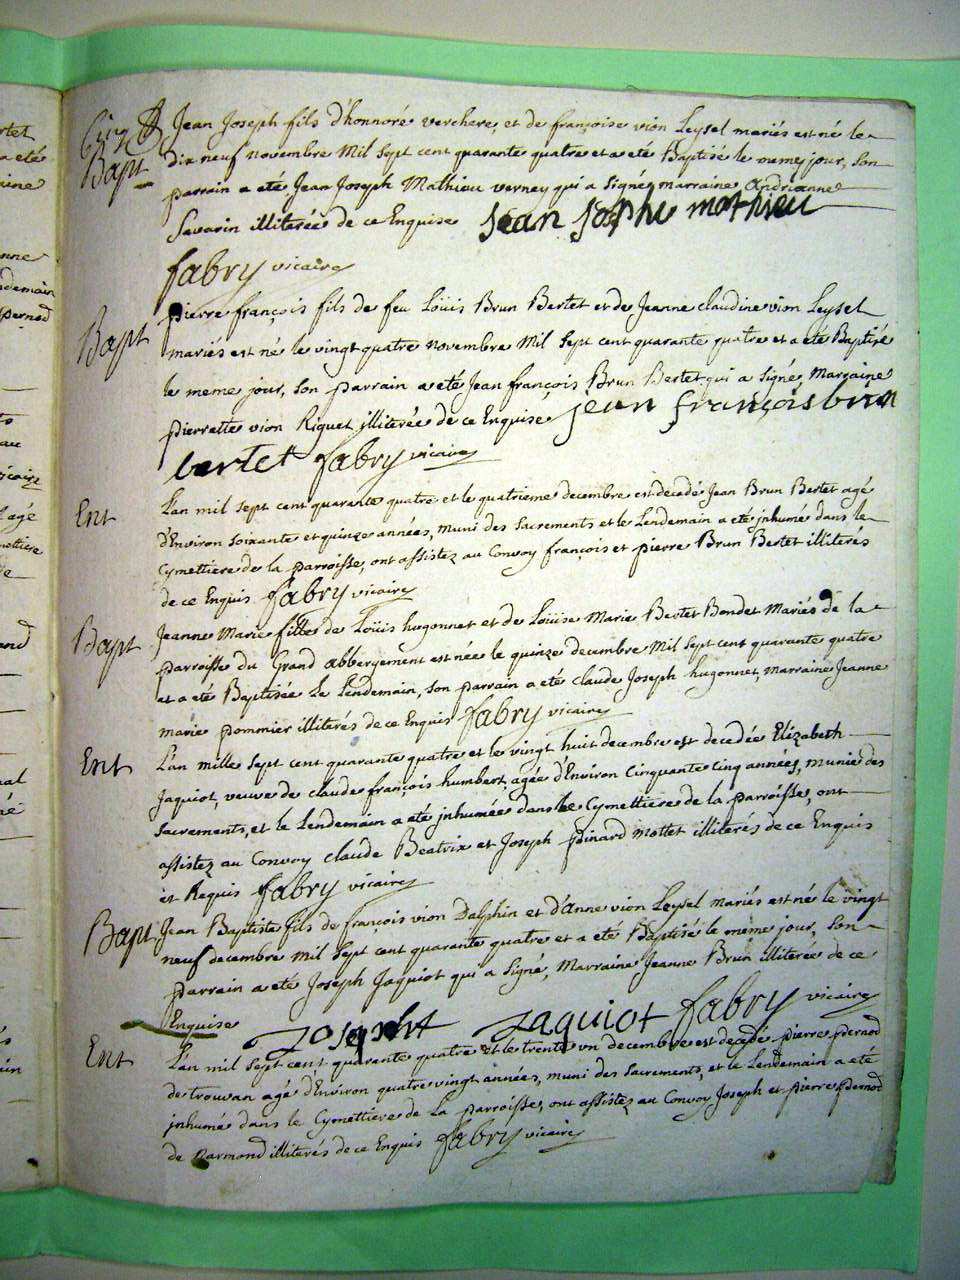 Bapt
Jean Joseph fils d'honnoré verchere, et de françoise vion Leysel mariés est né le
dix neuf novembre Mil Sept cent quarante quatre et a eté Baptisé le meme jour, son
parrain a eté Jean Joseph Mathieu verney qui a signé, marraine Andrianne
Savarin illiterée de ce Enquise jean josephe mathieu
fabry vicaire
Bapt
pierre françois fils de feu Loüis Brun Bertet et de Jeanne claudine vion Leysel
mariés est né le vingt quatre novembre Mil Sept cent quarante quatre et a eté Baptisé
le meme jour, son parrain a eté Jean françois Brun Bertet qui a signé, Marraine
pierrette vion Riquet illiterée de ce Enquise jean françois brun
bertet fabry vicaire
Ent
L'an mil sept cent quarante quatre et le quatrieme decembre est decedé Jean Brun Bertet agé
d'Environ soixante et quinze années, muni des Sacrements et le Lendemain a eté jnhumé dans le
Cymettiere de la parroisse, ont assistez au Convoy françois et pierre Brun Bertet illiterés
de ce Enquis fabry vicaire
Bapt
Jeanne Marie fille de Loüis hugonnet et de Loüise Marie Bertet Bondet Mariés de la
parroisse du Grand abbergement est née le quinze decembre Mil Sept cent quarante quatre
et a eté Baptisée Le Lendemain, son parrain a eté claude Joseph hugonnet, marraine Jeanne
marie pommier illiterés de ce Enquis fabry vicaire
Ent
L'an mille sept cent quarante quatre et le vingt huit decembre est decedée Elizabeth
Jaquiot, veuve de claude françois humbert, agée d'Environ Cinquante Cinq années, munie des
sacrements, et le Lendemain a eté jnhumée dans le Cymettiere de la parroisse, ont
assistez au Convoy claude Beatrix et Joseph pinard Mottet illiterés de ce Enquis
et Requis fabry vicaire
Bapt
Jean Baptiste fils de françois vion Dalphin et d'anne vion Leysel mariés est né le vingt
neuf decembre Mil Sept cent quarante quatre et a eté Baptisé le meme jour, son
parrain a eté Joseph Jaquiot qui a signé, Marraine Jeanne Brun illiterée de ce
Enquise Josepht Jaquiot fabry vicaire
Ent
L'an mil sept cent quarante quatre et le trente un decembre est decedé pierre pernod
de trouvan agé d'Environ quatre vingt années, muni des Sacrements, et le Lendemain a eté
jnhumé dans le Cymettiere de La parroisse, ont assistez au Convoy Joseph et pierre pernod
de narmond illiterés de ce Enquis fabry vicaire